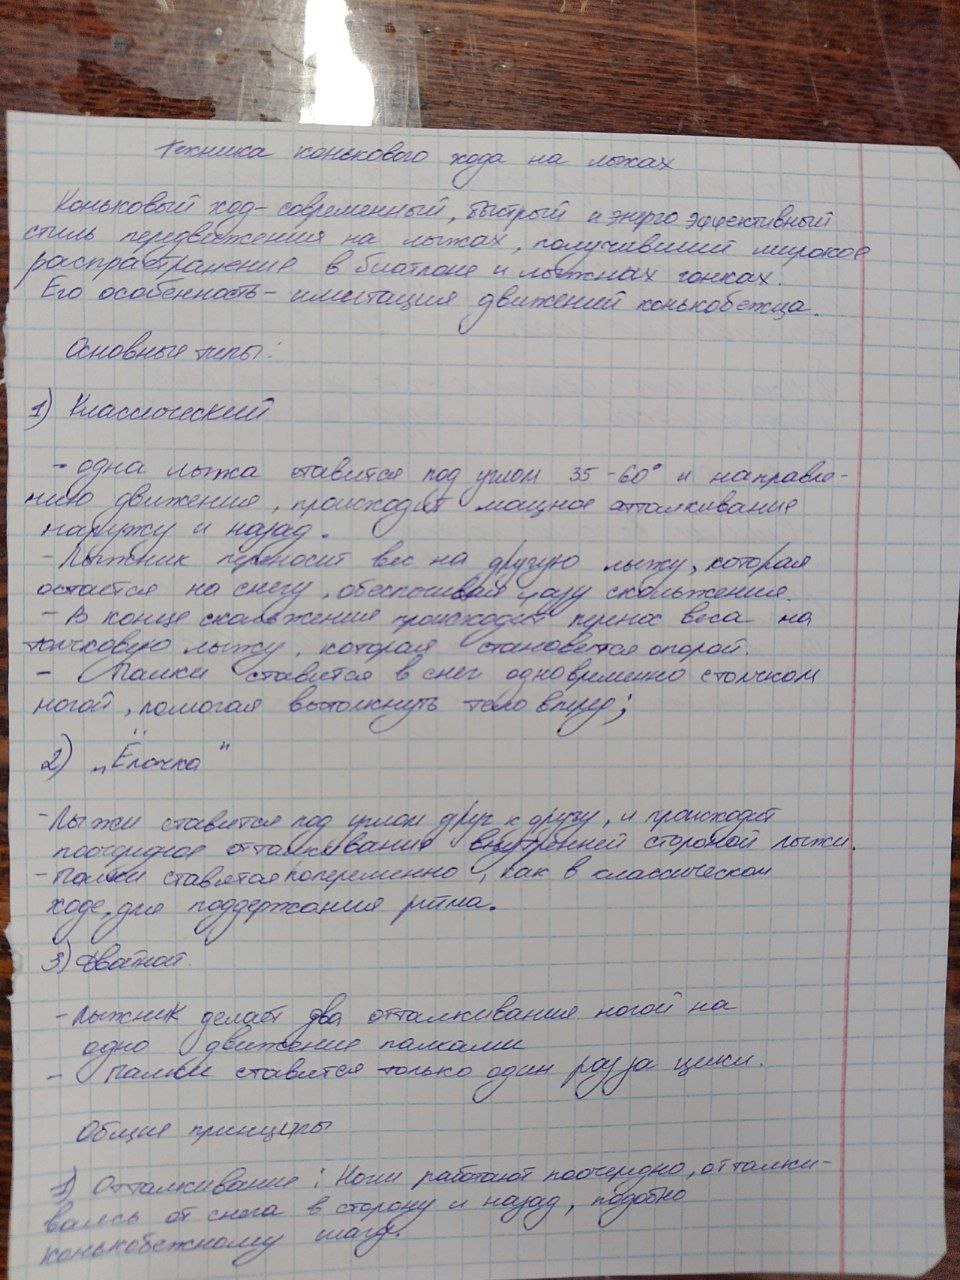 Техника конькового хода на лыжах
Коньковый ход - современный, быстрый и энерго эффективный
стиль передвижения на лыжах, получивший широкое
распространение в биатлоне и лыжных гонках.
Его особенность - имитация движений конькобежца.
Основные типы:
1) Классический
- одна лыжа ставится под углом 35-60° и направле-
нию движения, происходит мощное отталкивание
наружу и назад.
- Лыжник переносит вес на другую лыжу, которая
остаётся на снегу, обеспечивая фазу скольжения.
- В конце скольжения происходит перенос веса на
толчковую лыжу, которая становится опорой.
- Палки ставится в снег одновременно с толчком
ногой, помогая вытолкнуть тело вперед;
2) „Ёлочка"
- Лыжи ставится под углом друг к другу, и происходит
поочередное отталкивание внутренней стороной лыжи.
- Палки ставятся попеременно, как в классическом
ходе, для поддержания ритма.
3) Двойной.
- Лыжник делает два отталкивания ногой на
одно движение палками
- Палки ставятся только один раз за цикл.
Общие принципы
1) Отталкивание: Ноги работают поочередно, отталки-
ваясь от снега в сторону и назад, подобно
конькобежному шагу.